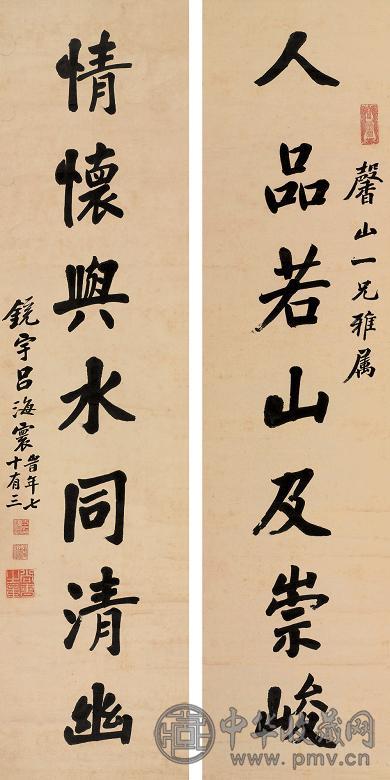 馨山一兄雅属
人品若山及崇峻
情懷與水同清幽
鏡宇吕海寰
旹年七
十有三
中华收藏网
www.pmv.cn